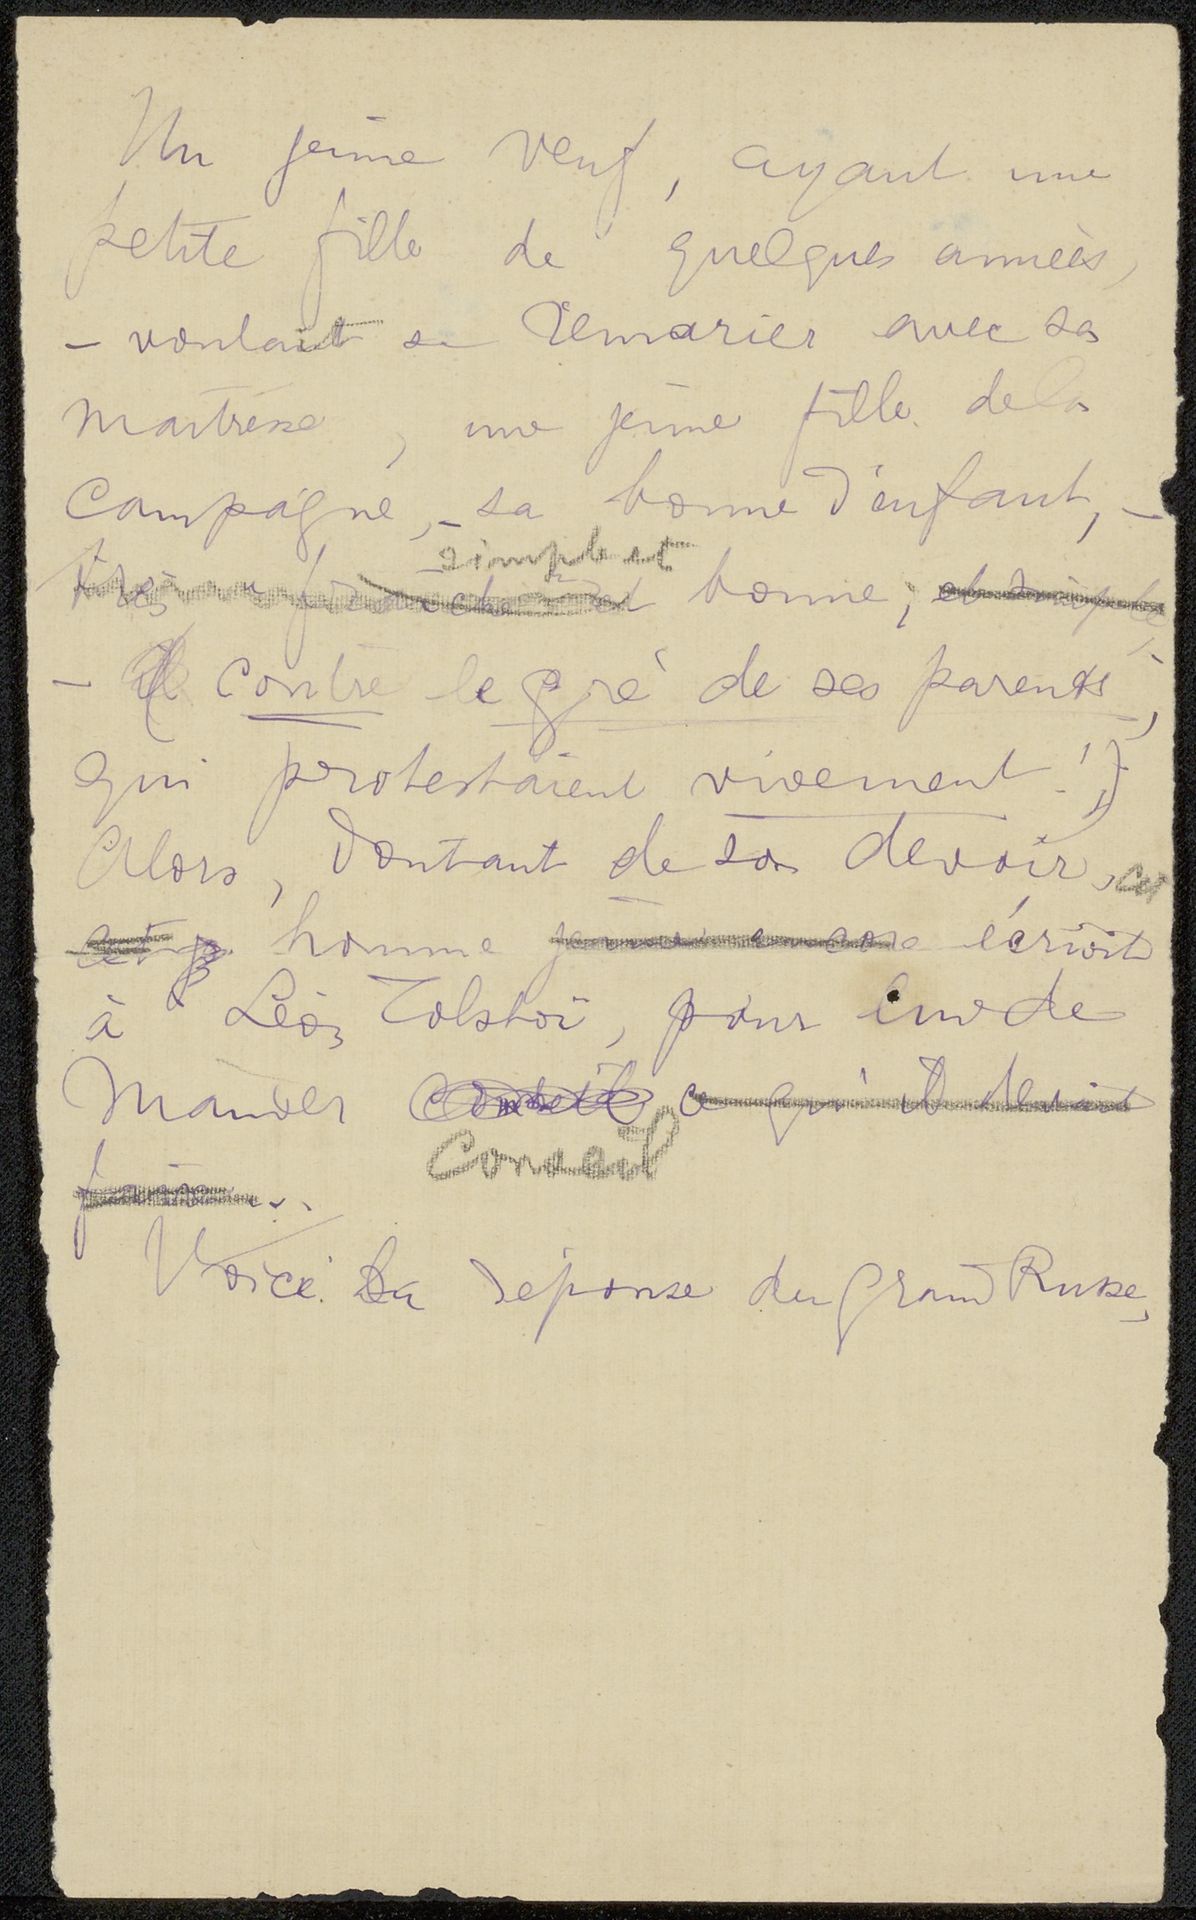 Un jeune veuf, ayant une
petite fille de quelques années,
– voulait se remarier avec sa
maîtresse, une jeune fille de la
campagne, – sa bonne d'enfant, –
simple et
très fraîche et bonne, et simple
– contre le gré de ses parents,
qui protestaient vivement!)
Alors, doutant de son devoir, cet
cet homme jeune encore écrivit
à Léon Tolstoï, pour lui de
mander conseil ce qu'il devait
conseil
faire...
Voici la réponse du grand Russe,